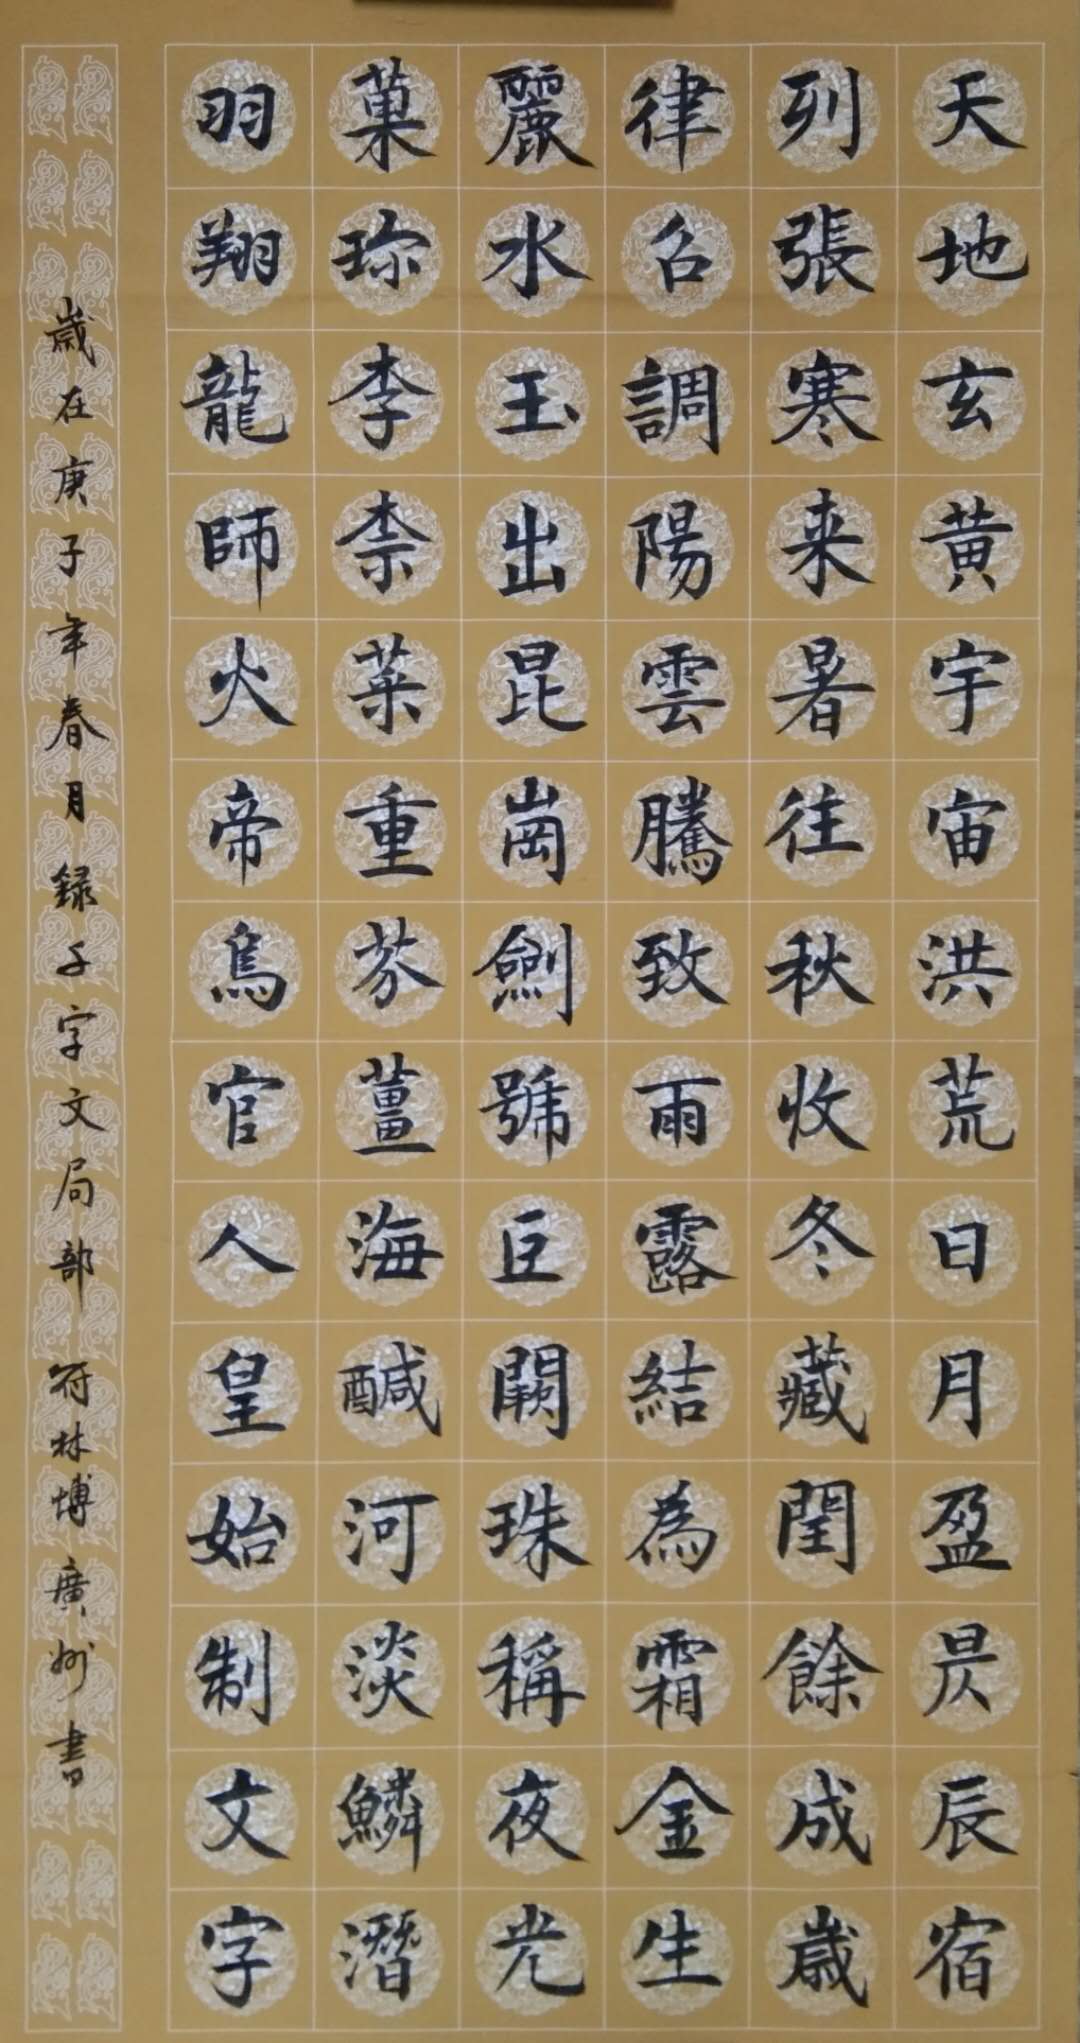 天地玄黄宇宙洪荒日月盈昃辰宿
列張寒来暑往秋收冬藏閏餘成歲
律召調陽雲騰致雨露結為霜金生
麗水玉出昆崗劍號巨闕珠稱夜光
菓珎李柰菜重芥薑海醎河淡鱗潛
羽翔龍師火帝鳥官人皇始制文字
歲在庚子年春月録千字文局部符林博廣州書